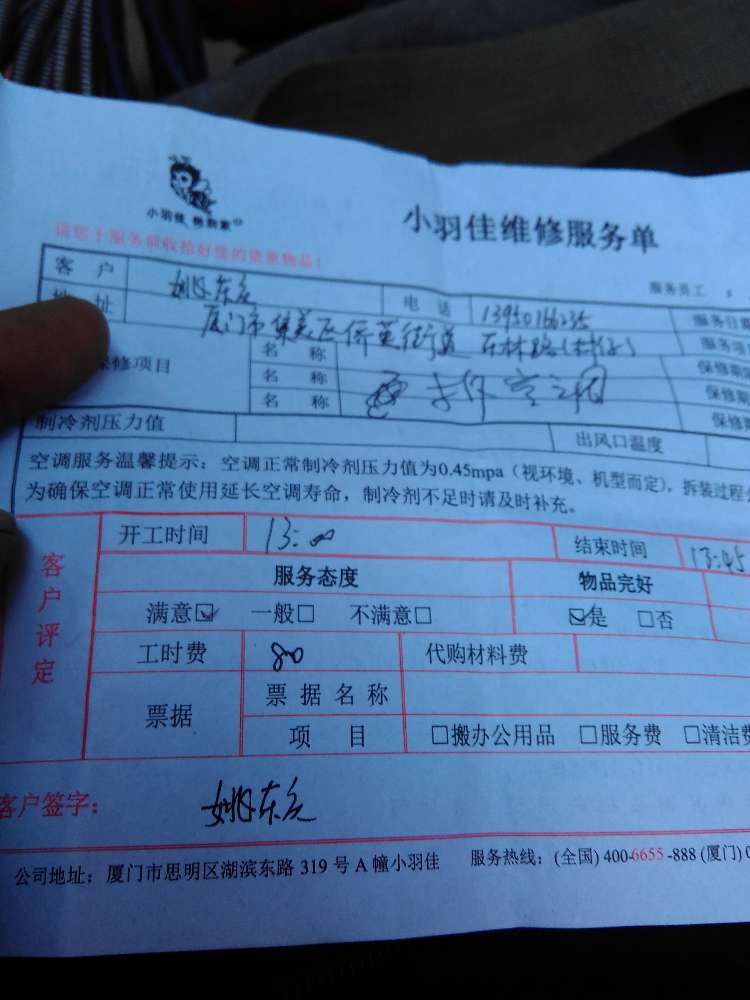 小羽佳
小羽佳维修服务单
请您于服务前收拾好您的贵重物品!
服务员工:
客 户 姚东 电 话 13950166235 服务日期
地 址 厦门市集美区侨英街道 东林路 服务项
保修项目 名 称 保修期
名 称 空调 保修期
名 称 保修期
制冷剂压力值 出风口温度
空调服务温馨提示:空调正常制冷剂压力值为0.45mpa(视环境、机型而定),拆装过程
为确保空调正常使用延长空调寿命,制冷剂不足时请及时补充。
客户评定
开工时间 13:00 结束时间 13:45
服务态度 物品完好
满意☑ 一般□ 不满意□ ☑是 □否
工时费 80 代购材料费
票据 票 据 名 称
项 目 □搬办公用品 □服务费 □清洁费
客户签字: 姚东
公司地址:厦门市思明区湖滨东路 319 号 A 幢小羽佳 服务热线:(全国) 400-6655-888 (厦门) 0